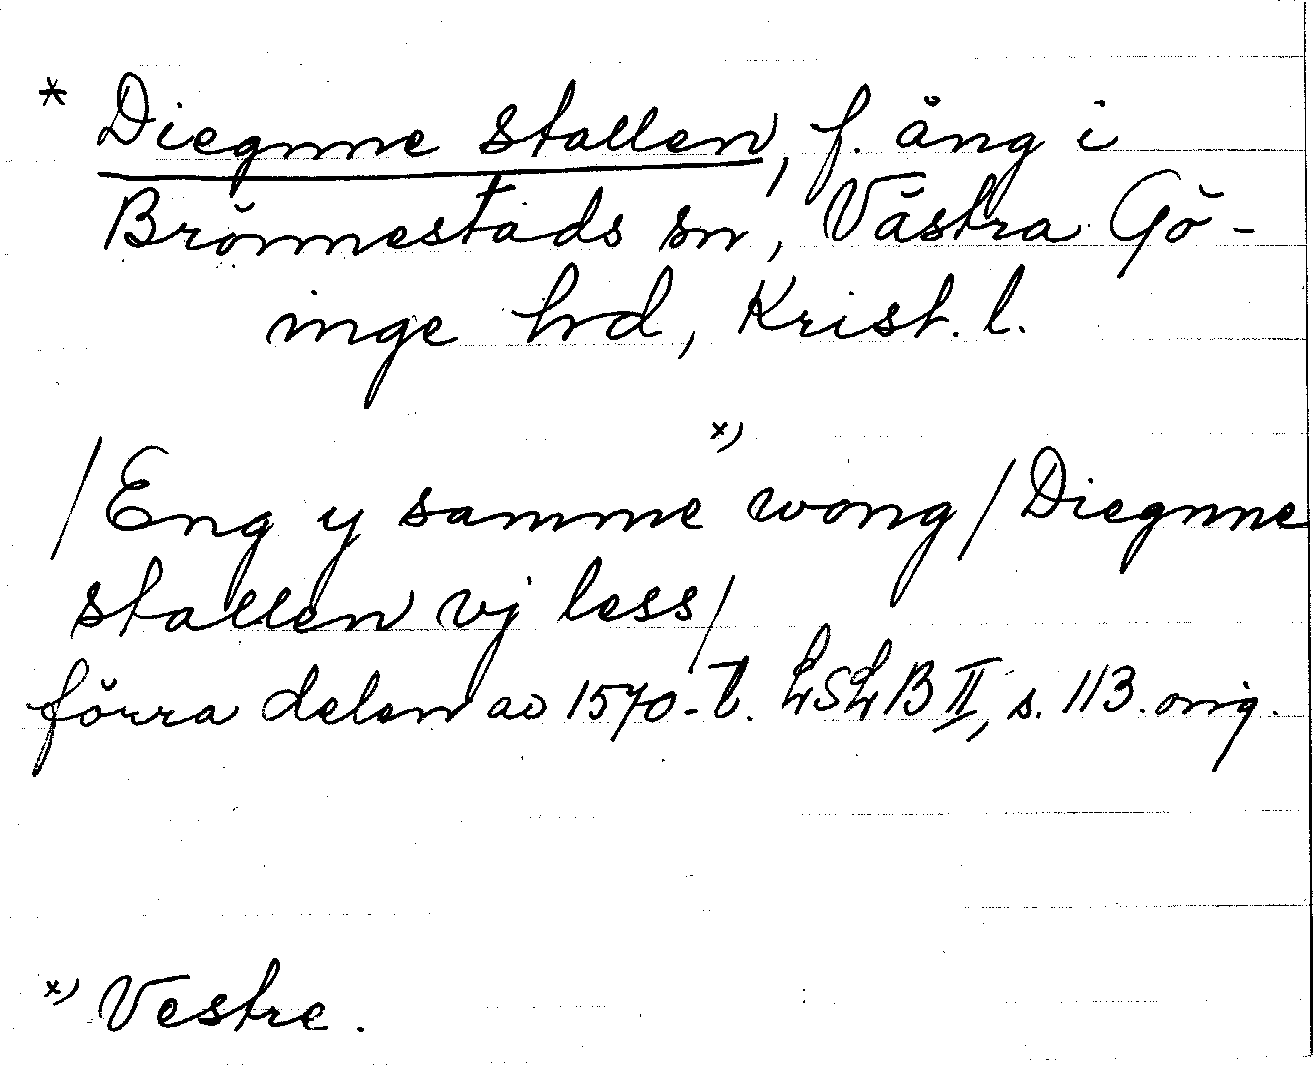 * Diegnne stallen, f. äng i
Brönnestads sn, Västra Gö-
inge hd, Krist. l.
/Eng y samme x) wong/Diegnne
stallen vj less/
förra delen av 1570-t. LSLB II, s. 113. orig.
x) Vestre.